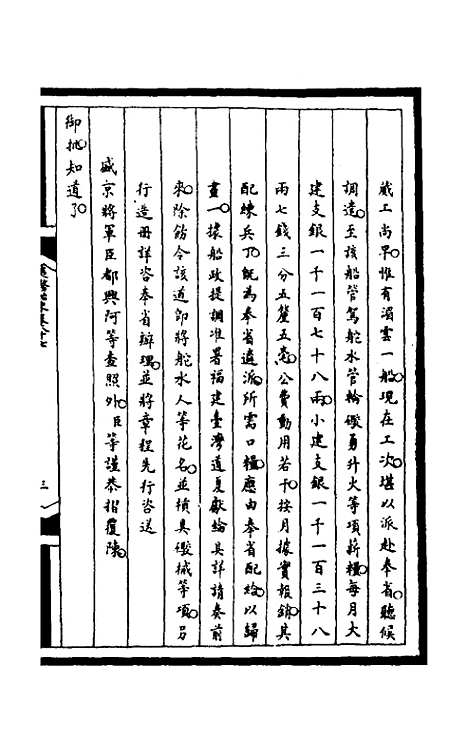 蕆工尚早惟有湄雲一船現在工次堪以派赴奉省聽候
調遣至該船管駕舵水管輪礮勇升火等項薪糧每月大
建支銀一千一百七十八兩小建支銀一千一百三十八
兩七錢三分五釐五毫公費動用若干按月據實報銷其
配練兵丁既為奉省遴派所需口糧應由奉省配給以歸
畫一據船政提調准署福建臺灣道夏獻綸具詳請奏前
來除飭令該道即將舵水人等花名並槓具礮械等項另
行造冊詳咨奉省辦理並將章程先行咨送
盛京將軍臣都興阿等查照外臣等謹恭摺覆陳
御批知道了
三